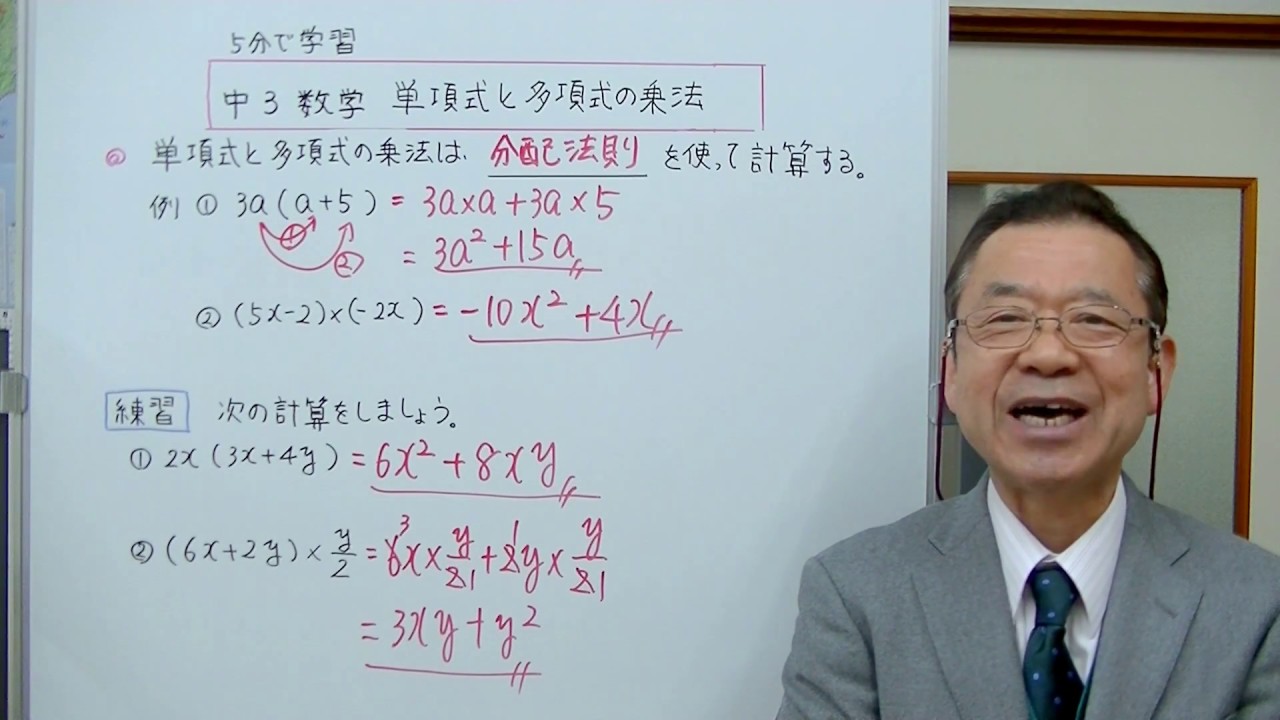 5分で学習
中3 数学 単項式と多項式の乗法
◎ 単項式と多項式の乗法は、分配法則を使って計算する。
例 ① 3a(a+5) = 3a×a+3a×5
① ② = 3a²+15a
② (5x-2)×(-2x) = -10x²+4x
練習 次の計算をしましょう。
① 2x(3x+4y) = 6x²+8xy
② (6x+2y)×y/2 = 6x×y/2+2y×y/2
3 1 1 1
= 3xy+y²